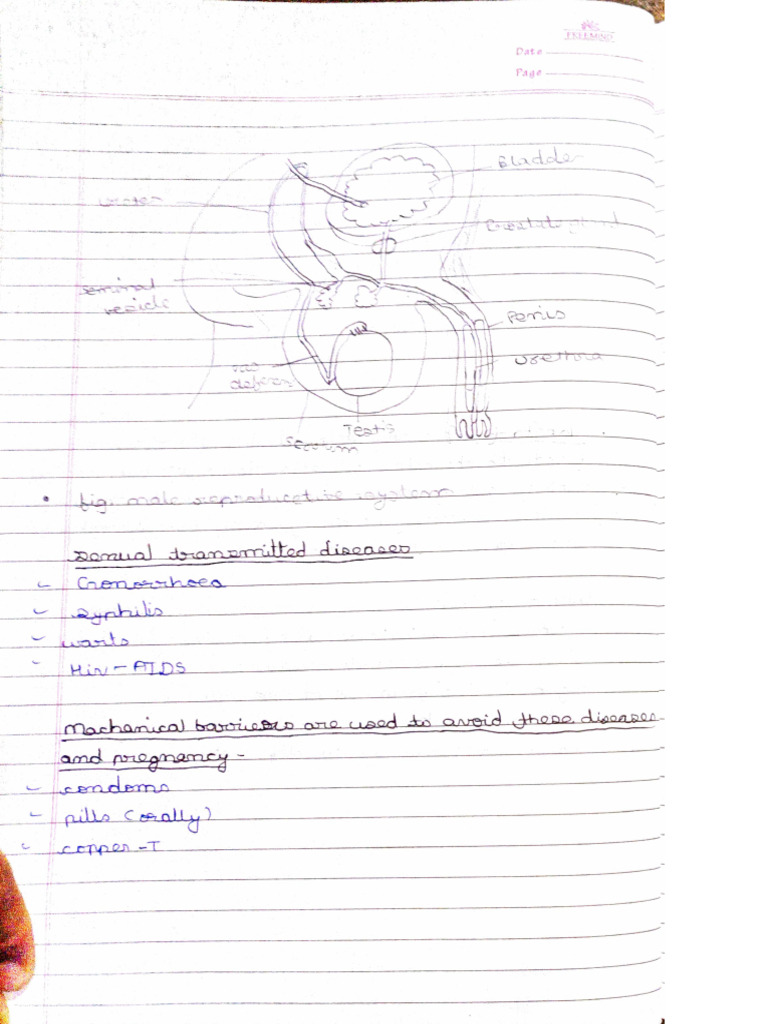 FREEMIND
Date
Page
Bladder
ureter
gland
seminal
vesicle
Penis
urethra
vas
deferen
Testis
Scrotum
• fig. male reproductive system
sexual transmitted diseases
Gonorrhoea
syphilis
warts
HIV - AIDS
Machanical barriers are used to avoid these diseases
and pregnency -
condoms
pills (orally)
copper - T